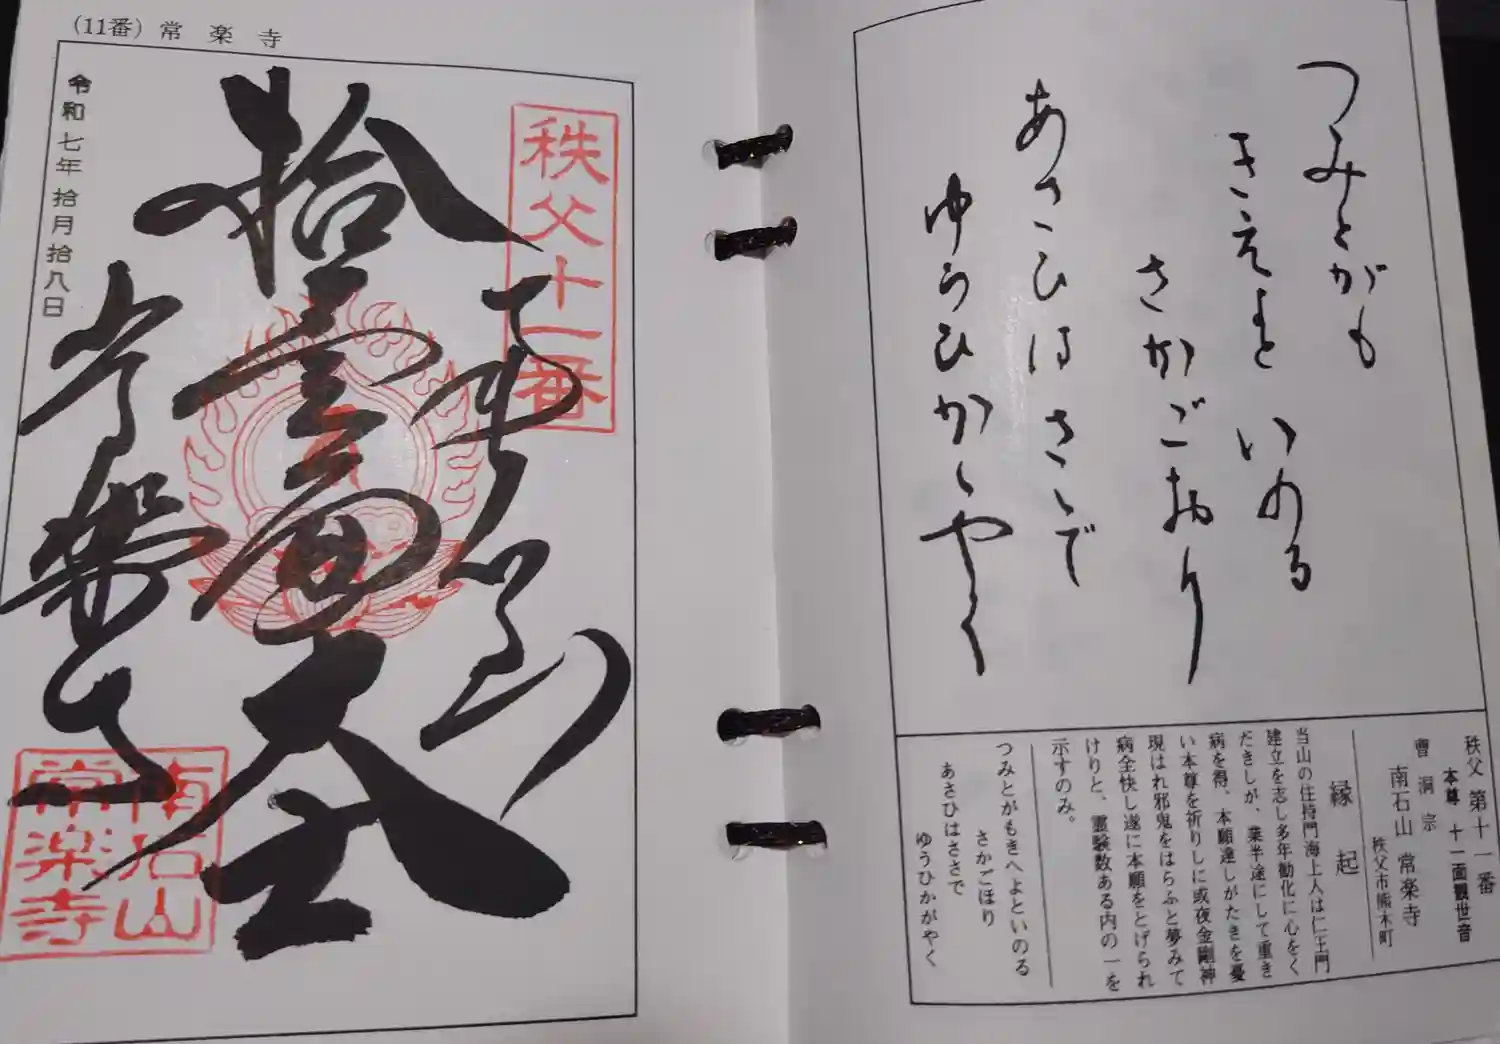 (11番) 常楽寺
令和七年拾月拾八日
秩父十一番
拾壹面大士
常楽寺
南石山
常楽寺
つみとがも
きえよと いのる
さかごおり
あさひはさゝで
ゆうひかゝやく
秩父 第十一番
本尊 十一面観世音
曹洞宗
南石山 常楽寺
秩父市熊木町
縁起
当山の住持門海上人は仁王門
建立を志し多年勧化に心をく
だきしが、業半途にして重き
病を得、本願達しがたきを憂
い本尊を祈りしに或夜金剛神
現はれ邪鬼をはらふと夢みて
病全快し遂に本願をとげられ
けりと、霊験数ある内の一を
示すのみ。
つみとがもきへよといのる
さかごほり
あさひはささで
ゆうひかがやく